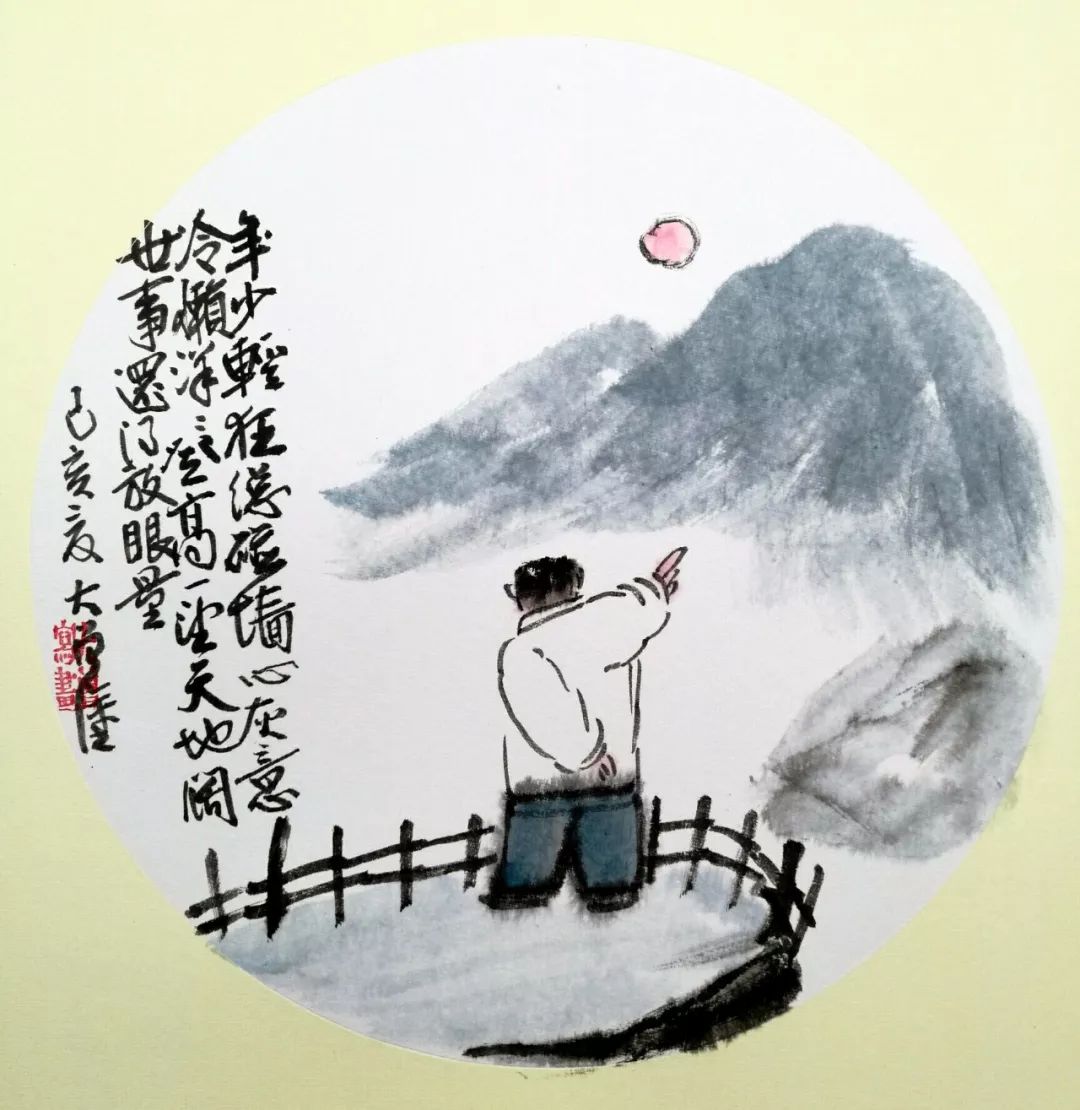 年少輕狂總碰墙心灰意
冷懶洋洋登高一望天地闊
世事還得放眼量
己亥夏大陸
寫畫